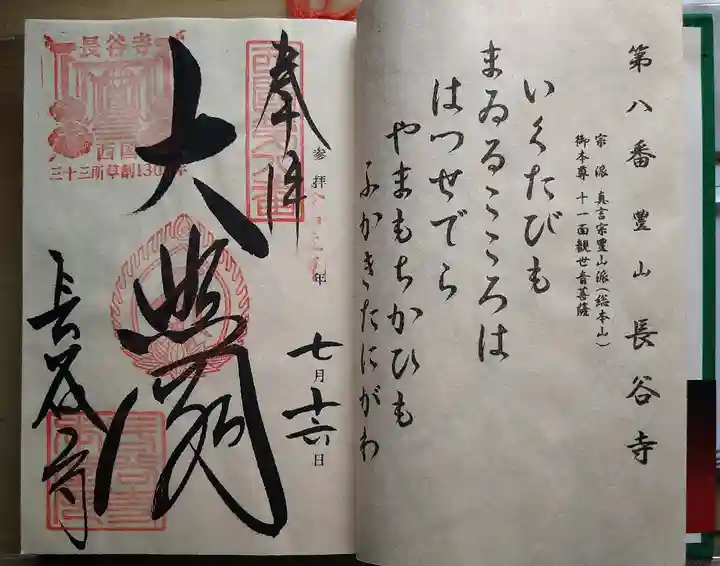 第八番 豊山 長谷寺
宗派 真言宗豊山派(総本山)
御本尊 十一面観世音菩薩
いくたびも
まゐるこゝろは
はつせでら
やまもちかひも
ふかきたにがわ
奉拝
参拝 年 七月十六日
大悲閣
長谷寺
長谷寺
西国
三十三所草創1300年